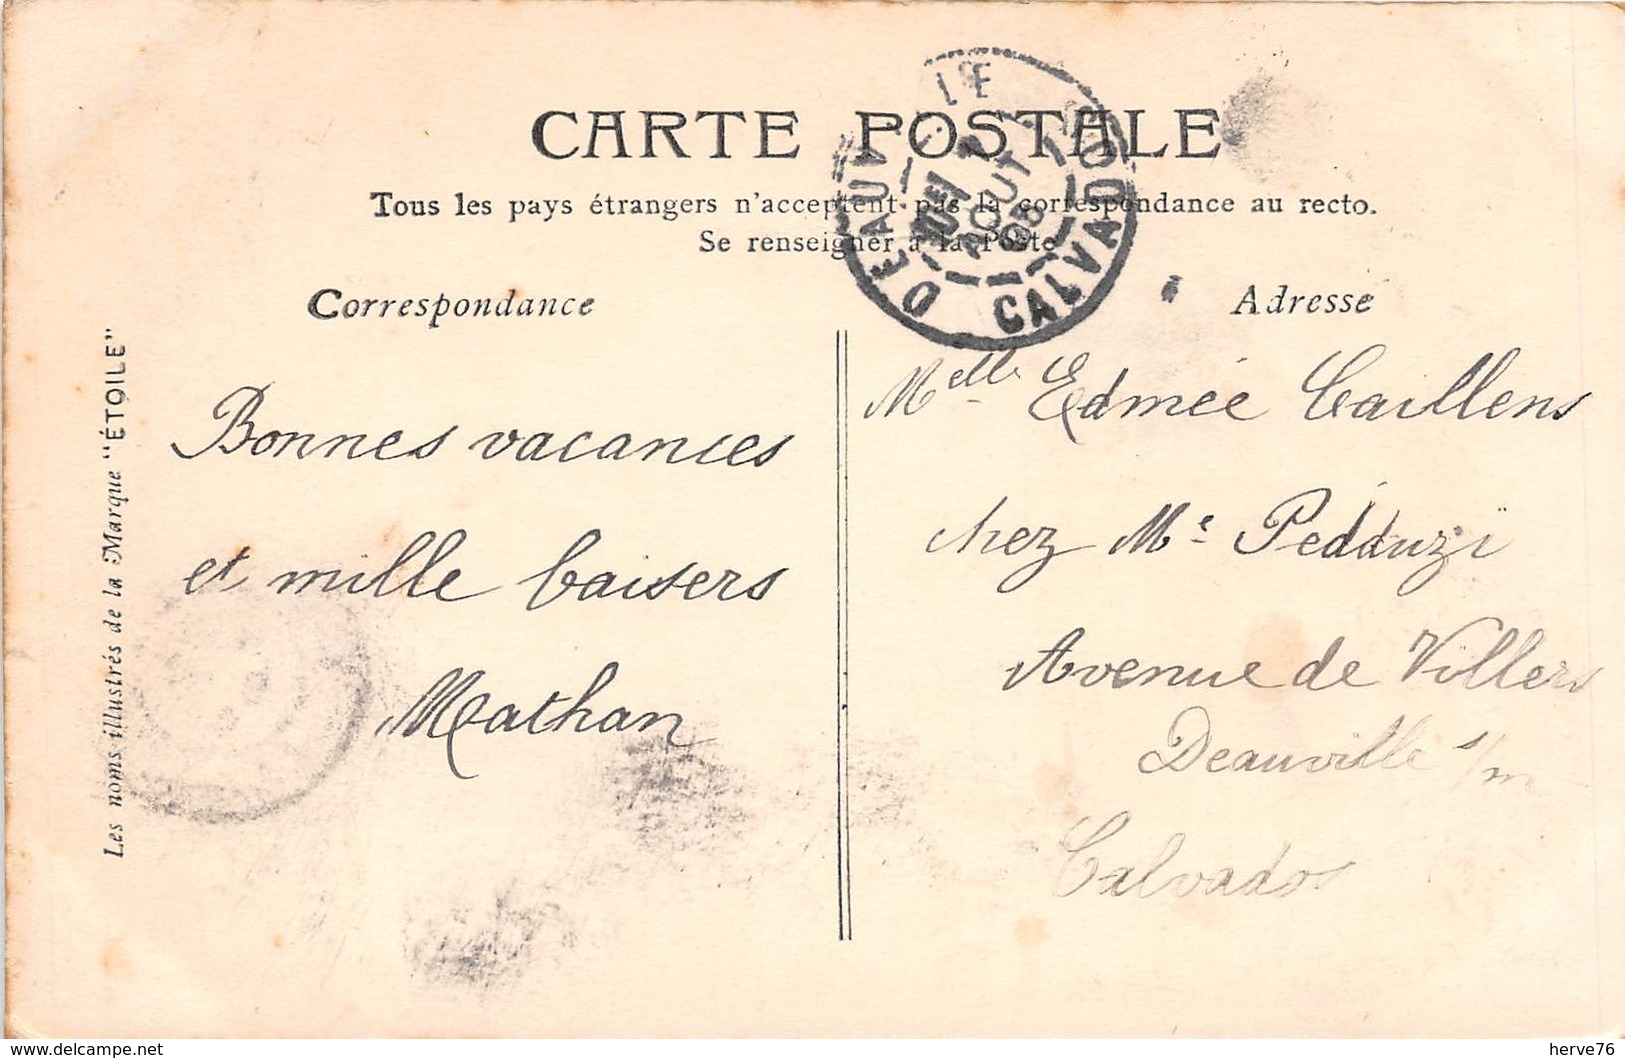 CARTE POSTALE
Tous les pays étrangers n'acceptent pas la correspondance au recto.
Se renseigner à la Poste
DEAUVILLE
AOUT
CALVADOS
Correspondance
Adresse
Bonnes vacances
et mille baisers
Mathan
Melle Edmée Caillens
chez Me Pedduzi
Avenue de Villers
Deauville s/m
Calvados
Les noms illustrés de la Marque "ÉTOILE"
https://www.delcampe.net
herve76